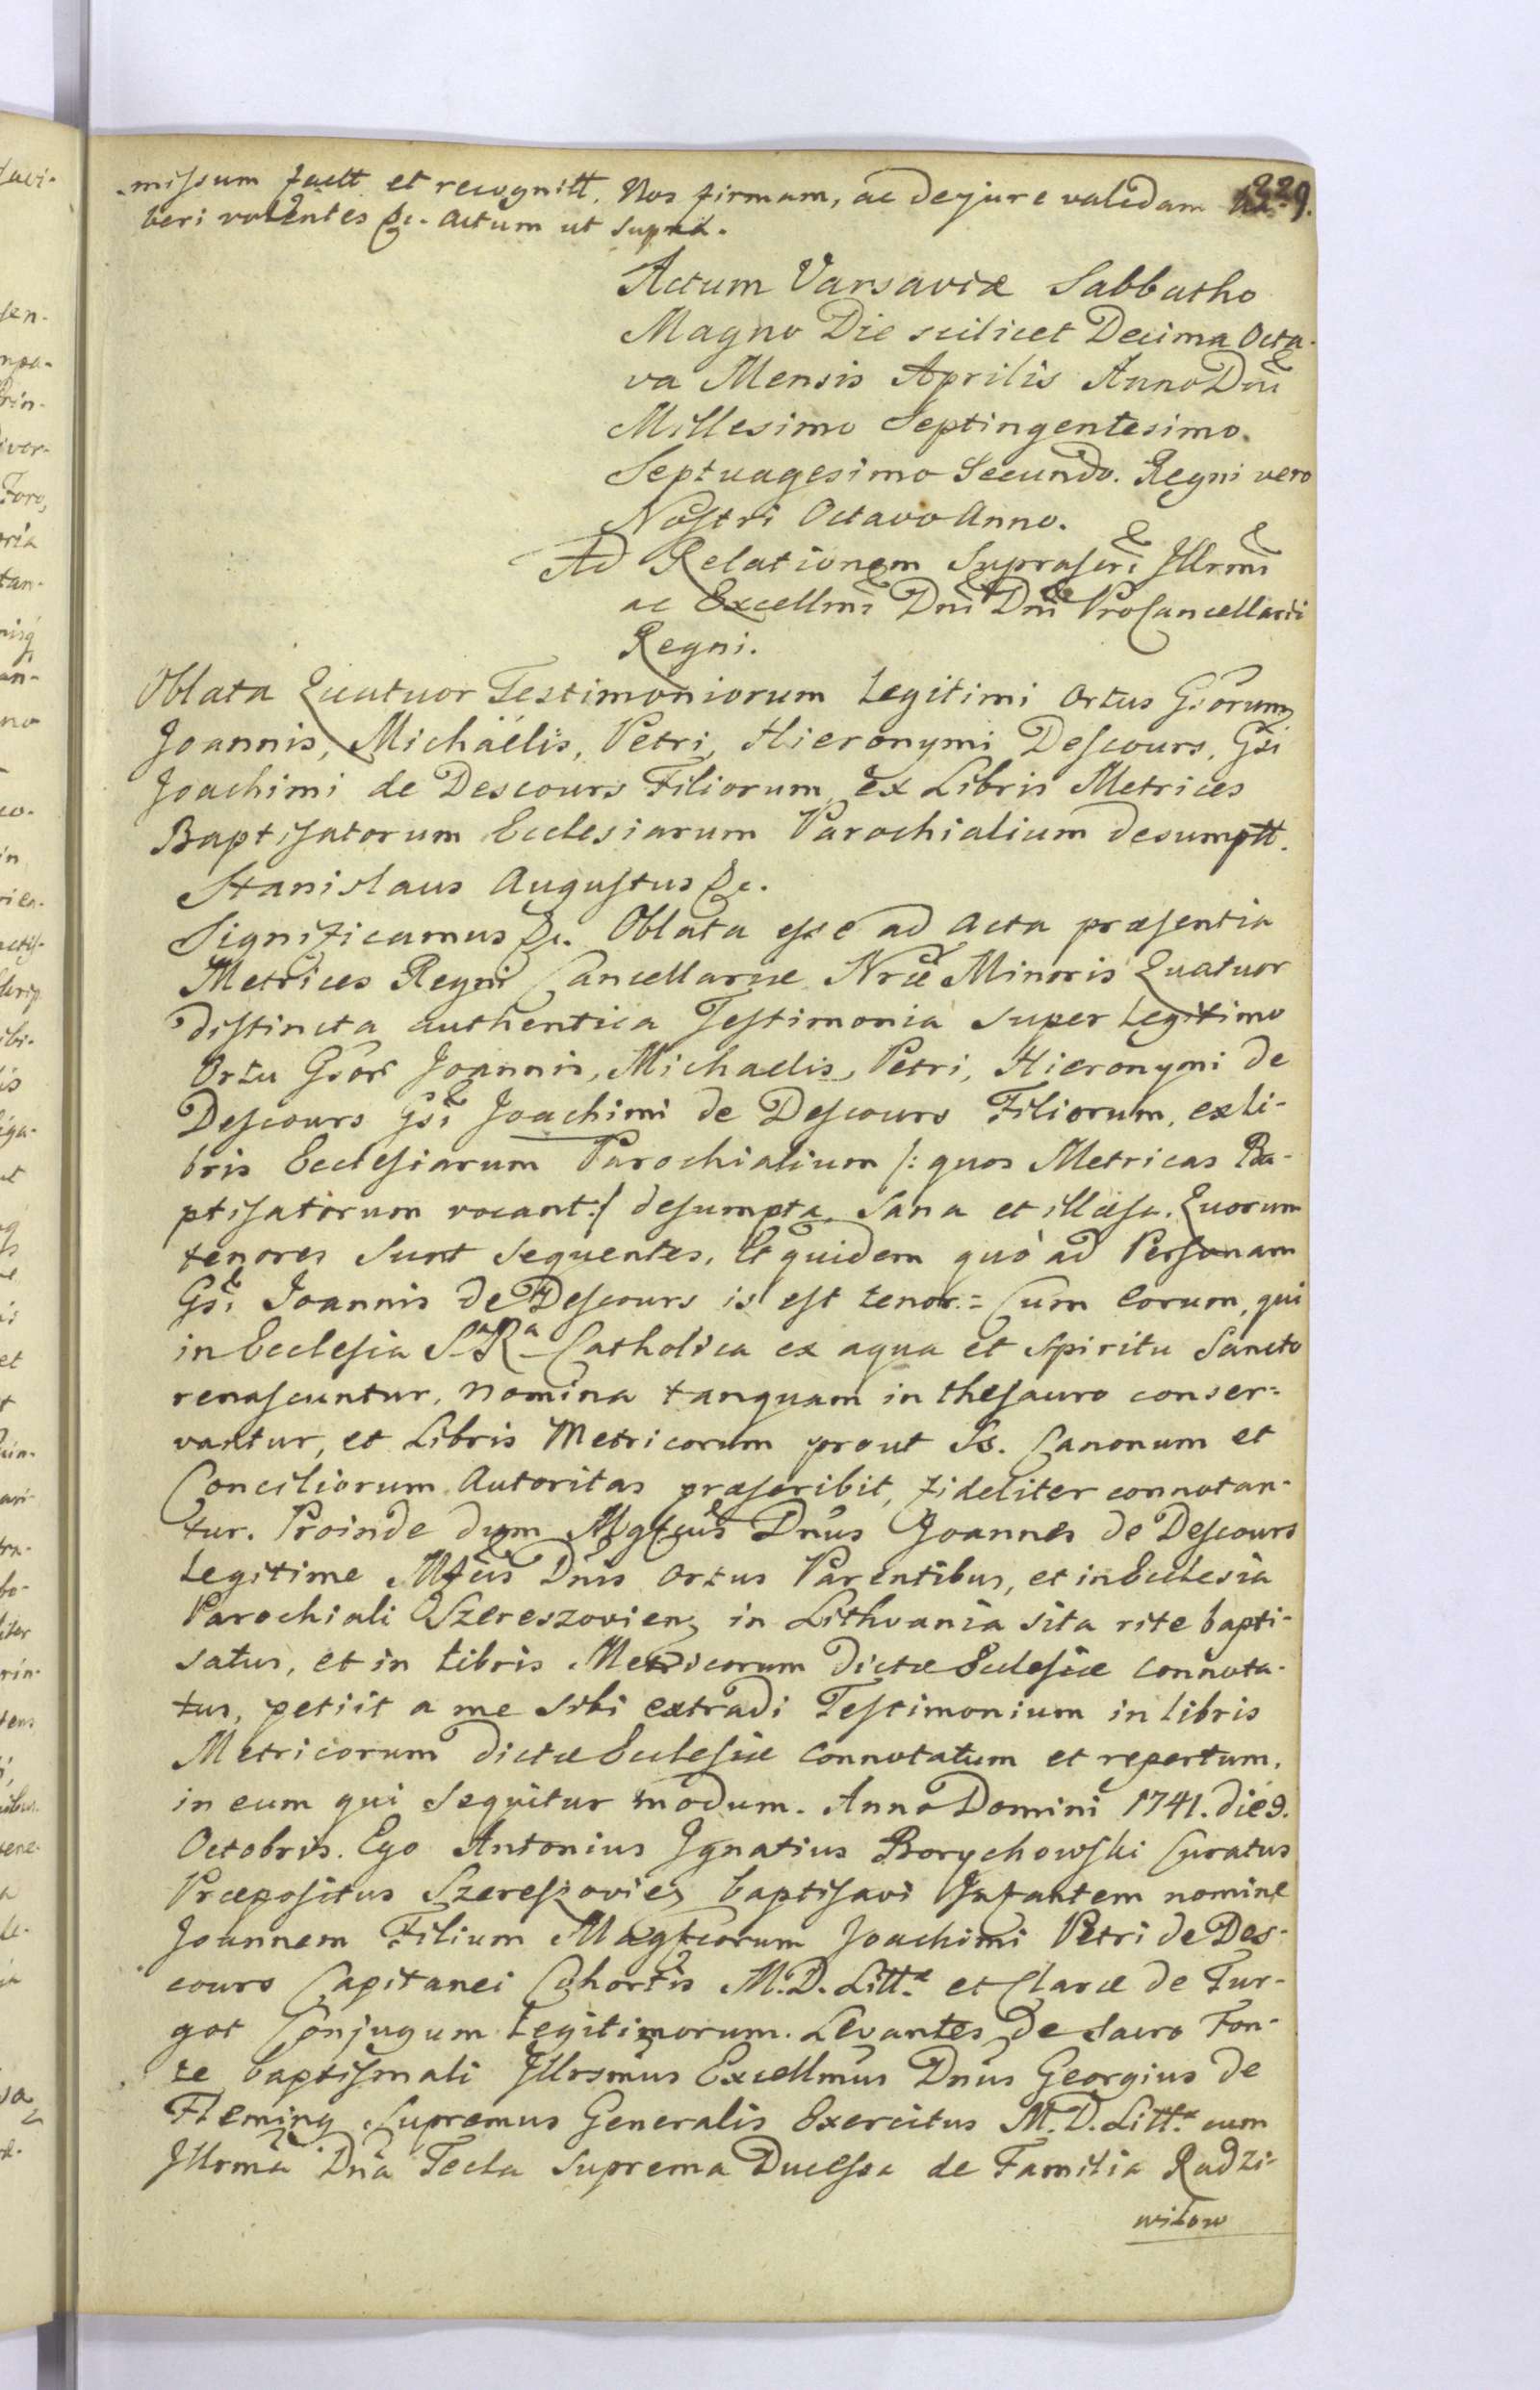 -missum factt et recognitt. Nos firmam, ac dejure validam ha- 229.
beri volentes &c. Actum ut supra.
Actum Varsaviæ Sabbatho
Magno Die scilicet Decima Octa-
va Mensis Aprilis Anno Dni
Millesimo Septingentesimo
Septuagesimo Secundo. Regni vero
Nostri Octavo Anno.
Ad Relationem Suprascri Illrmi
ac Excellmi Dni Dni ProCancellarii
Regni.
Oblata Quatuor Testimoniorum Legitimi Ortus Gsorum
Joannis, Michäelis, Petri, Hieronymi Descours, Gsi
Joachimi de Descours Filiorum, ex Libris Metrices
Baptisatorum Ecclesiarum Parochialium desumptt.
Stanislaus Augustus &c.
Significamus &c. Oblata esse ad Acta præsentia
Metrices Regni Cancellariæ Nræ Minoris Quatuor
distincta authentica Testimonia super Legitimo
Ortu Gsor Joannis, Michaelis, Petri, Hieronymi de
Descours Gsi Joachimi de Descours Filiorum, ex li-
bris Ecclesiarum Parochialium /: quos Metricas Ba-
ptisatorum vocant :/ desumpta sana et illæsa. Quorum
tenores sunt sequentes. Et quidem quò ad Personam
Gsi Joannis de Descours is est tenor = Cum eorum, qui
in Ecclesia Sa Ra Catholica ex aqua et Spiritu Sancto
renascuntur, nomina tanquam in thesauro conser=
vantur, et Libris Metricorum prout Ss. Canonum et
Conciliorum Autoritas præscribit, fideliter connotan-
tur. Proinde dum Mgfcus Dnus Joannes de Descours
Legitime Mfcis Dnis Ortus Parentibus, et in Ecclesia
Parochiali Szereszovien in Lithvania sita rite bapti-
satus, et in Libris Metricorum dictæ Ecclesiæ connota-
tus, petiit a me sibi extradi Testimonium in libris
Metricorum dictæ Ecclesiæ connotatum et repertum,
in eum qui sequitur modum. Anno Domini 1741. die 9.
Octobris. Ego Antonius Ignatius Borychowski Curatus
Præpositus Szereszovien baptisavi Infantem nomine
Joannem Filium Magfcorum Joachimi Petri de Des-
cours Capitanei Cohortis M. D. Litt.æ et Claræ de Tur-
got Conjugum Legitimorum. Levantes de Sacro Fon-
te baptismali Illrsmus Excellmus Dnus Georgius de
Fleming Supremus Generalis Exercitus M. D. Litt.æ cum
Illrma Dna Tecla Suprema Ducessa de Familia Radzi-
wilow